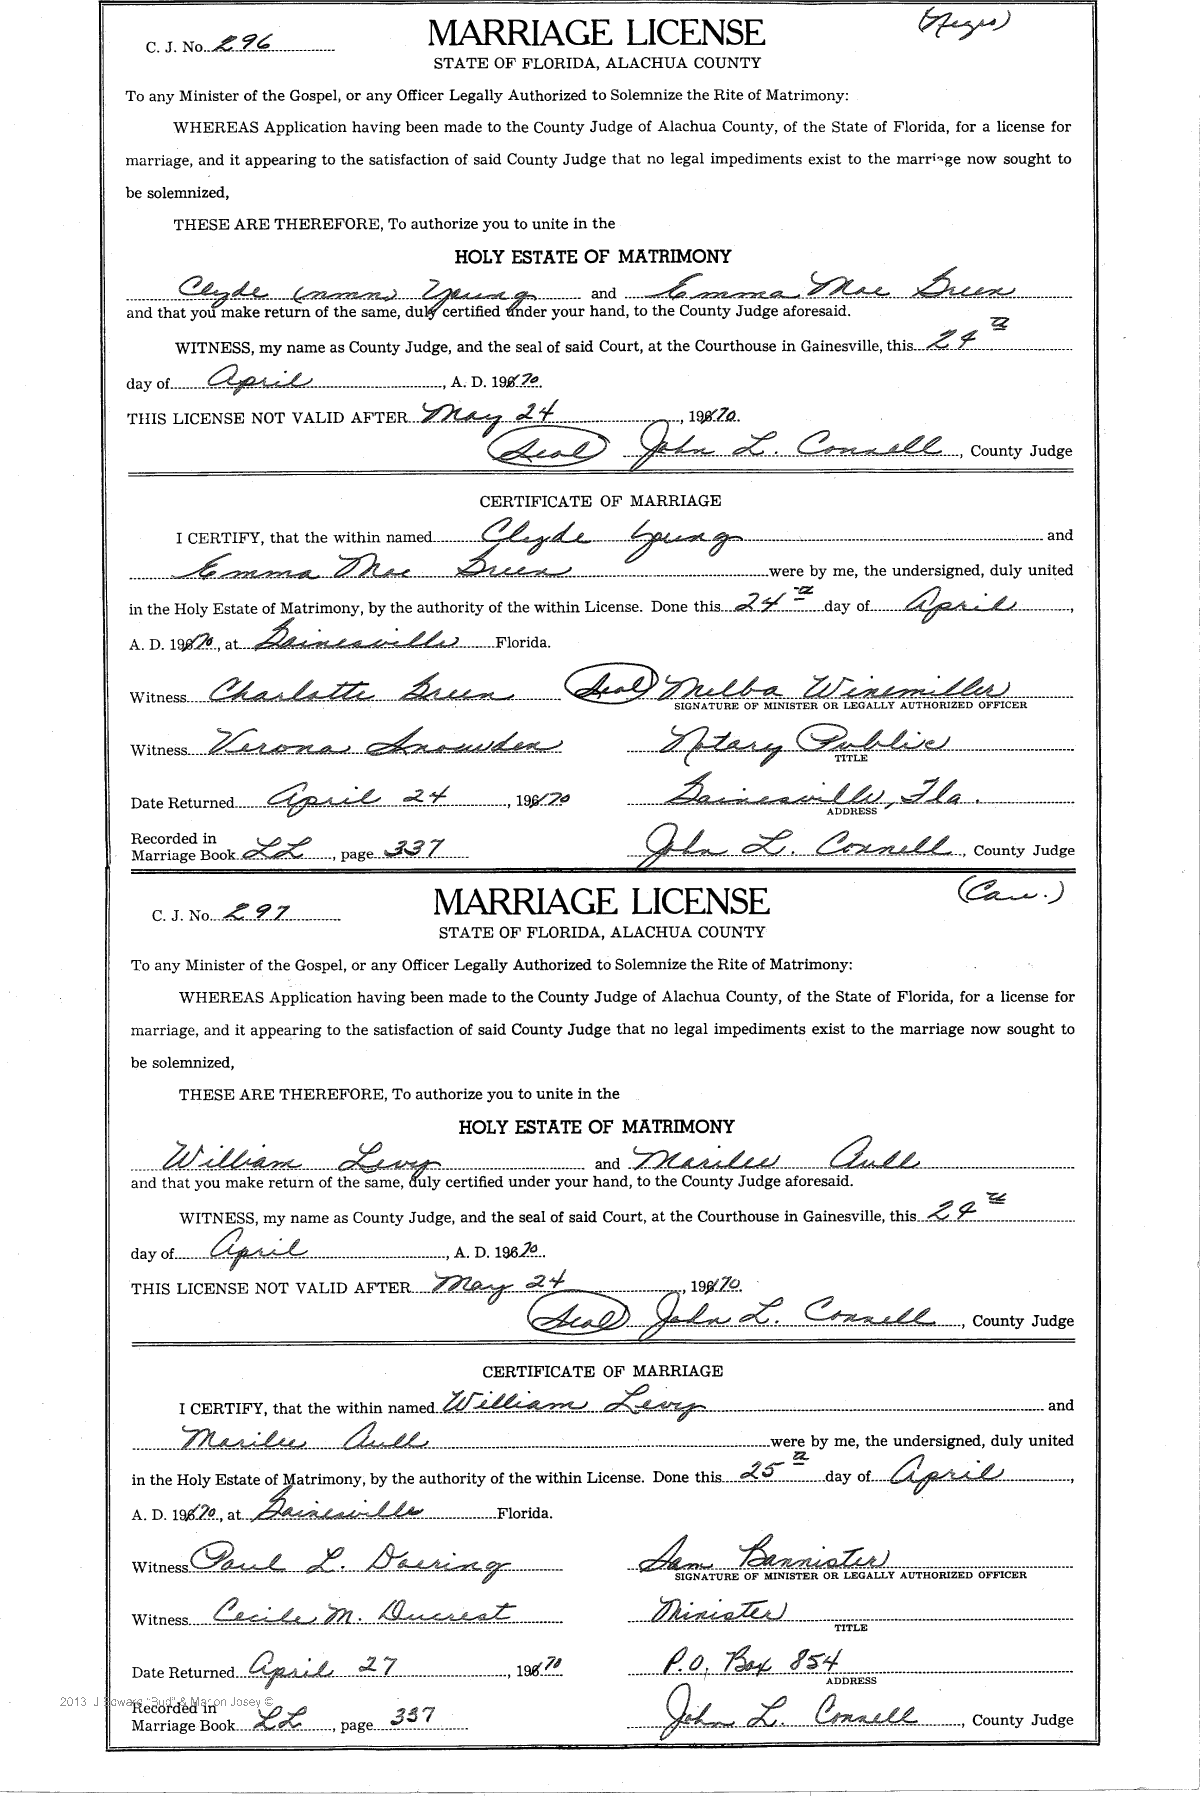 (Negro)
C. J. No. 296
MARRIAGE LICENSE
STATE OF FLORIDA, ALACHUA COUNTY
To any Minister of the Gospel, or any Officer Legally Authorized to Solemnize the Rite of Matrimony:
WHEREAS Application having been made to the County Judge of Alachua County, of the State of Florida, for a license for
marriage, and it appearing to the satisfaction of said County Judge that no legal impediments exist to the marriage now sought to
be solemnized,
THESE ARE THEREFORE, To authorize you to unite in the
HOLY ESTATE OF MATRIMONY
Clyde (nmn) Young and Emma Mae Green
and that you make return of the same, duly certified under your hand, to the County Judge aforesaid.
WITNESS, my name as County Judge, and the seal of said Court, at the Courthouse in Gainesville, this 24th
day of April, A. D. 1970.
THIS LICENSE NOT VALID AFTER May 24, 1970.
(Seal) John L. Connell, County Judge
CERTIFICATE OF MARRIAGE
I CERTIFY, that the within named Clyde Young and
Emma Mae Green were by me, the undersigned, duly united
in the Holy Estate of Matrimony, by the authority of the within License. Done this 24th day of April,
A. D. 1970, at Gainesville Florida.
Witness Charlotte Green (Seal) Melba Winemiller
SIGNATURE OF MINISTER OR LEGALLY AUTHORIZED OFFICER
Witness Verona Snowden Notary Public
TITLE
Date Returned April 24, 1970 Gainesville, Fla.
ADDRESS
Recorded in
Marriage Book LL, page 337 John L. Connell, County Judge
(Cau.)
C. J. No. 297
MARRIAGE LICENSE
STATE OF FLORIDA, ALACHUA COUNTY
To any Minister of the Gospel, or any Officer Legally Authorized to Solemnize the Rite of Matrimony:
WHEREAS Application having been made to the County Judge of Alachua County, of the State of Florida, for a license for
marriage, and it appearing to the satisfaction of said County Judge that no legal impediments exist to the marriage now sought to
be solemnized,
THESE ARE THEREFORE, To authorize you to unite in the
HOLY ESTATE OF MATRIMONY
William Levy and Marilee Aull
and that you make return of the same, duly certified under your hand, to the County Judge aforesaid.
WITNESS, my name as County Judge, and the seal of said Court, at the Courthouse in Gainesville, this 24th
day of April, A. D. 1970.
THIS LICENSE NOT VALID AFTER May 24, 1970.
(Seal) John L. Connell, County Judge
CERTIFICATE OF MARRIAGE
I CERTIFY, that the within named William Levy and
Marilee Aull were by me, the undersigned, duly united
in the Holy Estate of Matrimony, by the authority of the within License. Done this 25th day of April,
A. D. 1970, at Gainesville Florida.
Witness Paul L. Doering Sam Bannister
SIGNATURE OF MINISTER OR LEGALLY AUTHORIZED OFFICER
Witness Cecile M. Ducrest Minister
TITLE
Date Returned April 27, 1970 P.O. Box 854
ADDRESS
2013 J Edward "Bud" & Macon Josey ©
Recorded in
Marriage Book LL, page 337 John L. Connell, County Judge